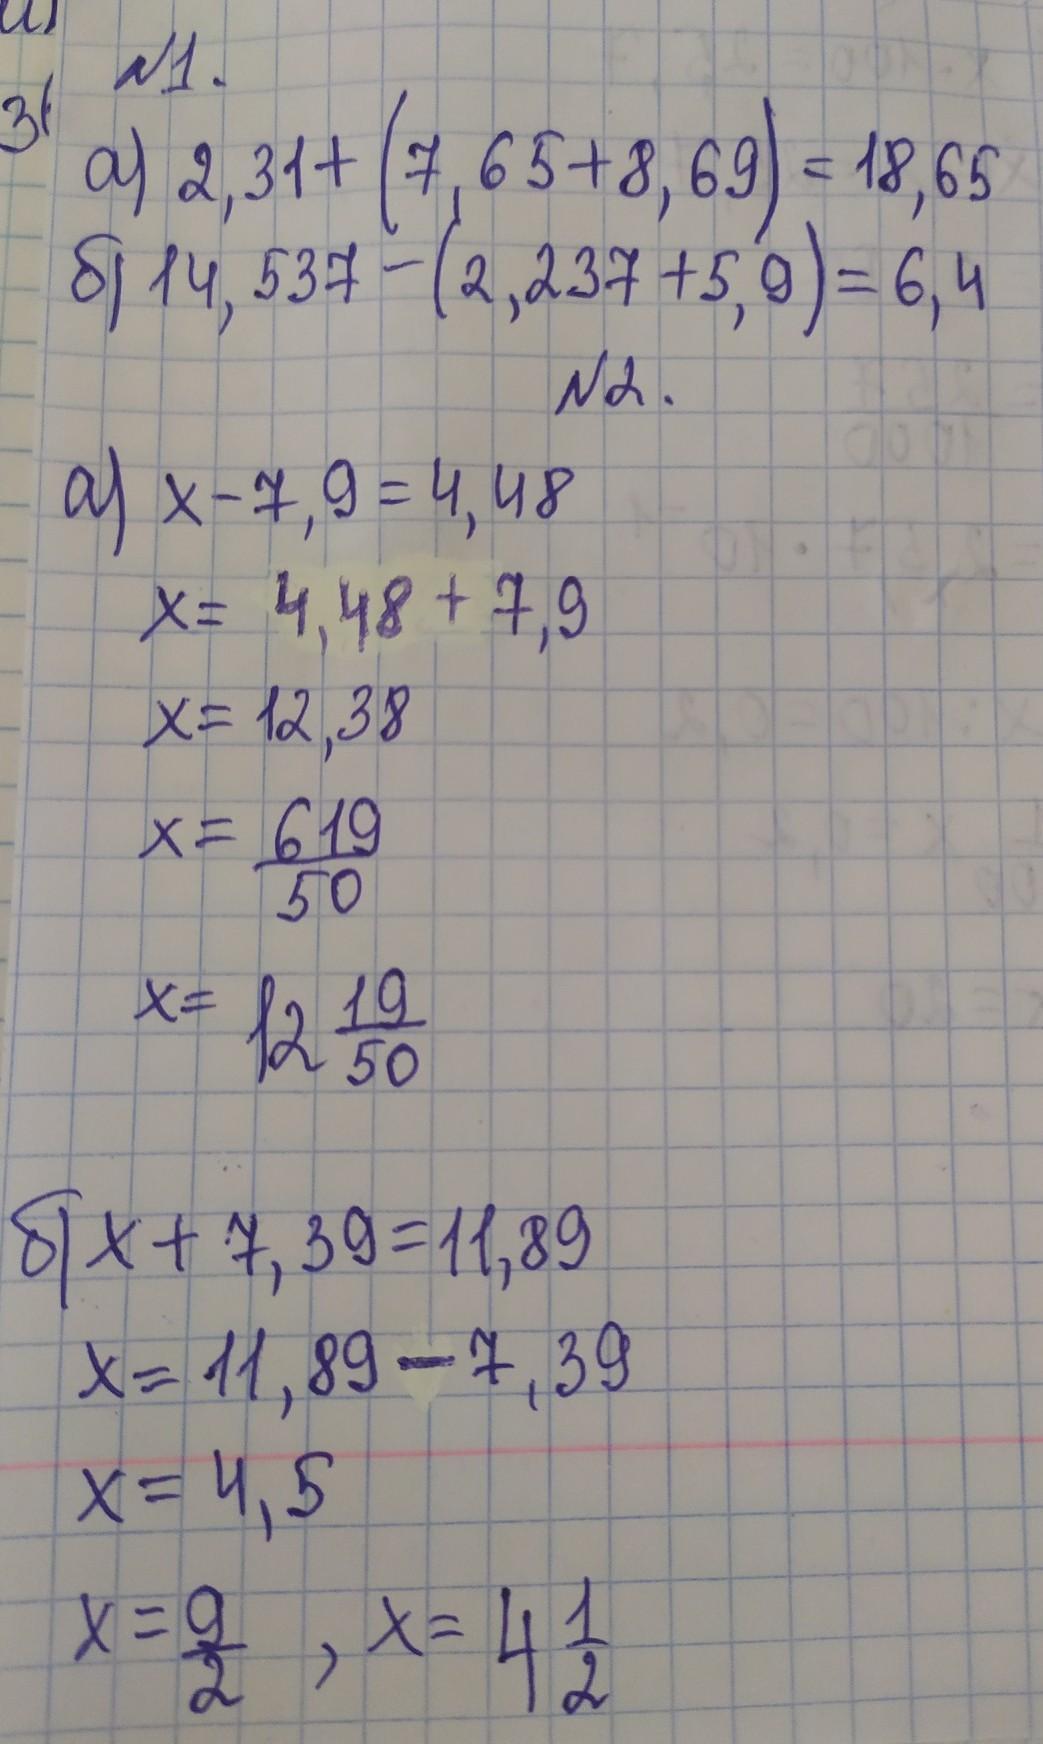 №1.
а) 2,31+(7,65+8,69)=18,65
б) 14,537-(2,237+5,9)=6,4
№2.
а) x-7,9=4,48
x= 4,48+7,9
x=12,38
x= 619/50
x= 12 19/50
б) x+7,39=11,89
x=11,89-7,39
x=4,5
x=9/2, x=4 1/2